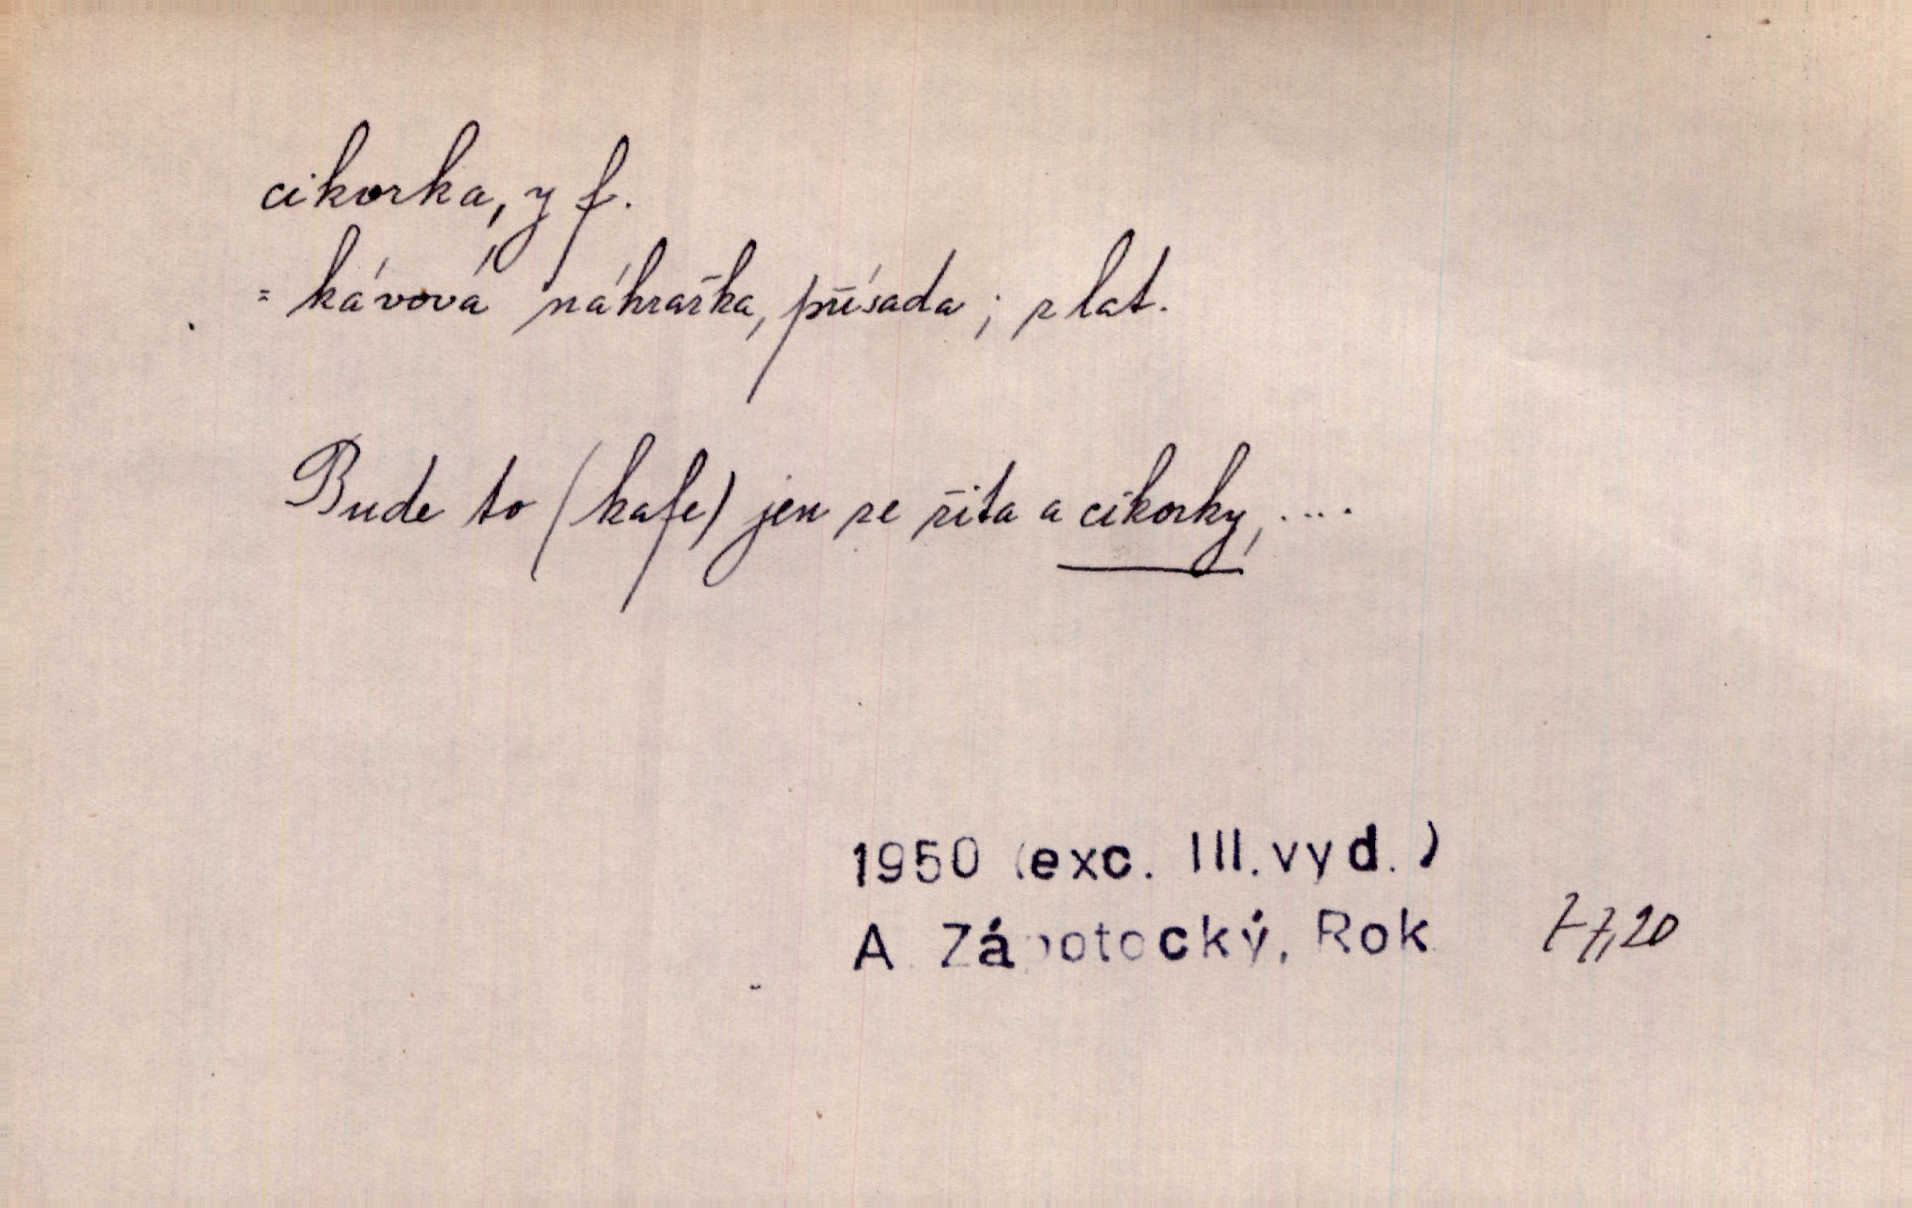 cikorka, y f.
= kávová náhražka, přísada; z lat.
Bude to (kafe) jen ze žita a cikorky, ....
1950 (exc. III. vyd.)
A. Zápotocký, Rok